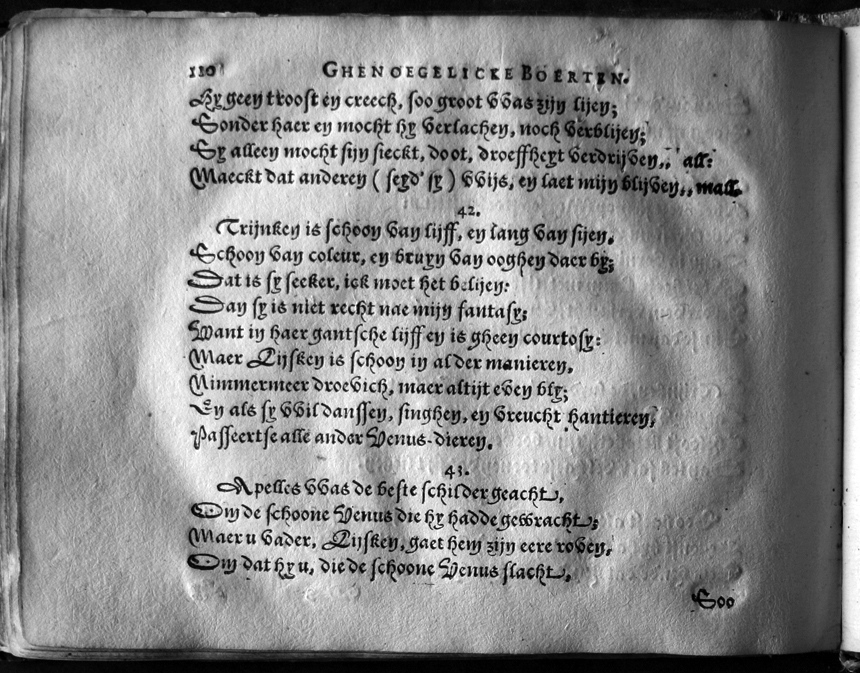 110 GHENOEGELICKE BOERTEN.
Hy geen troost en creech, soo groot vvas zijn lijen;
Sonder haer en mocht hy verlachen, noch verblijen;
Sy alleen mocht sijn sieckt, doot, droeffheyt verdrijven,, all:
Maeckt dat anderen (seyd' sy) vvijs, en laet mijn blijven,, mall.
42.
Trijnken is schoon van lijff, en lang van sijen,
Schoon van coleur, en bruyn van ooghen daer by;
Dat is sy seeker, ick moet het belijen:
Dan sy is niet recht nae mijn fantasy;
Want in haer gantsche lijff en is gheen courtosy:
Maer Lijsken is schoon in al der manieren,
Nimmermeer droevich, maer altijt even bly;
En als sy vvil danssen, singhen, en vreucht hantieren,
Passeertse alle ander Venus-dieren.
43.
Apelles vvas de beste schilder geacht,
Om de schoone Venus die hy hadde gewracht;
Maer u vader, Lijsken, gaet hem zijn eere roven,
Om dat hy u, die de schoone Venus slacht,
Soo